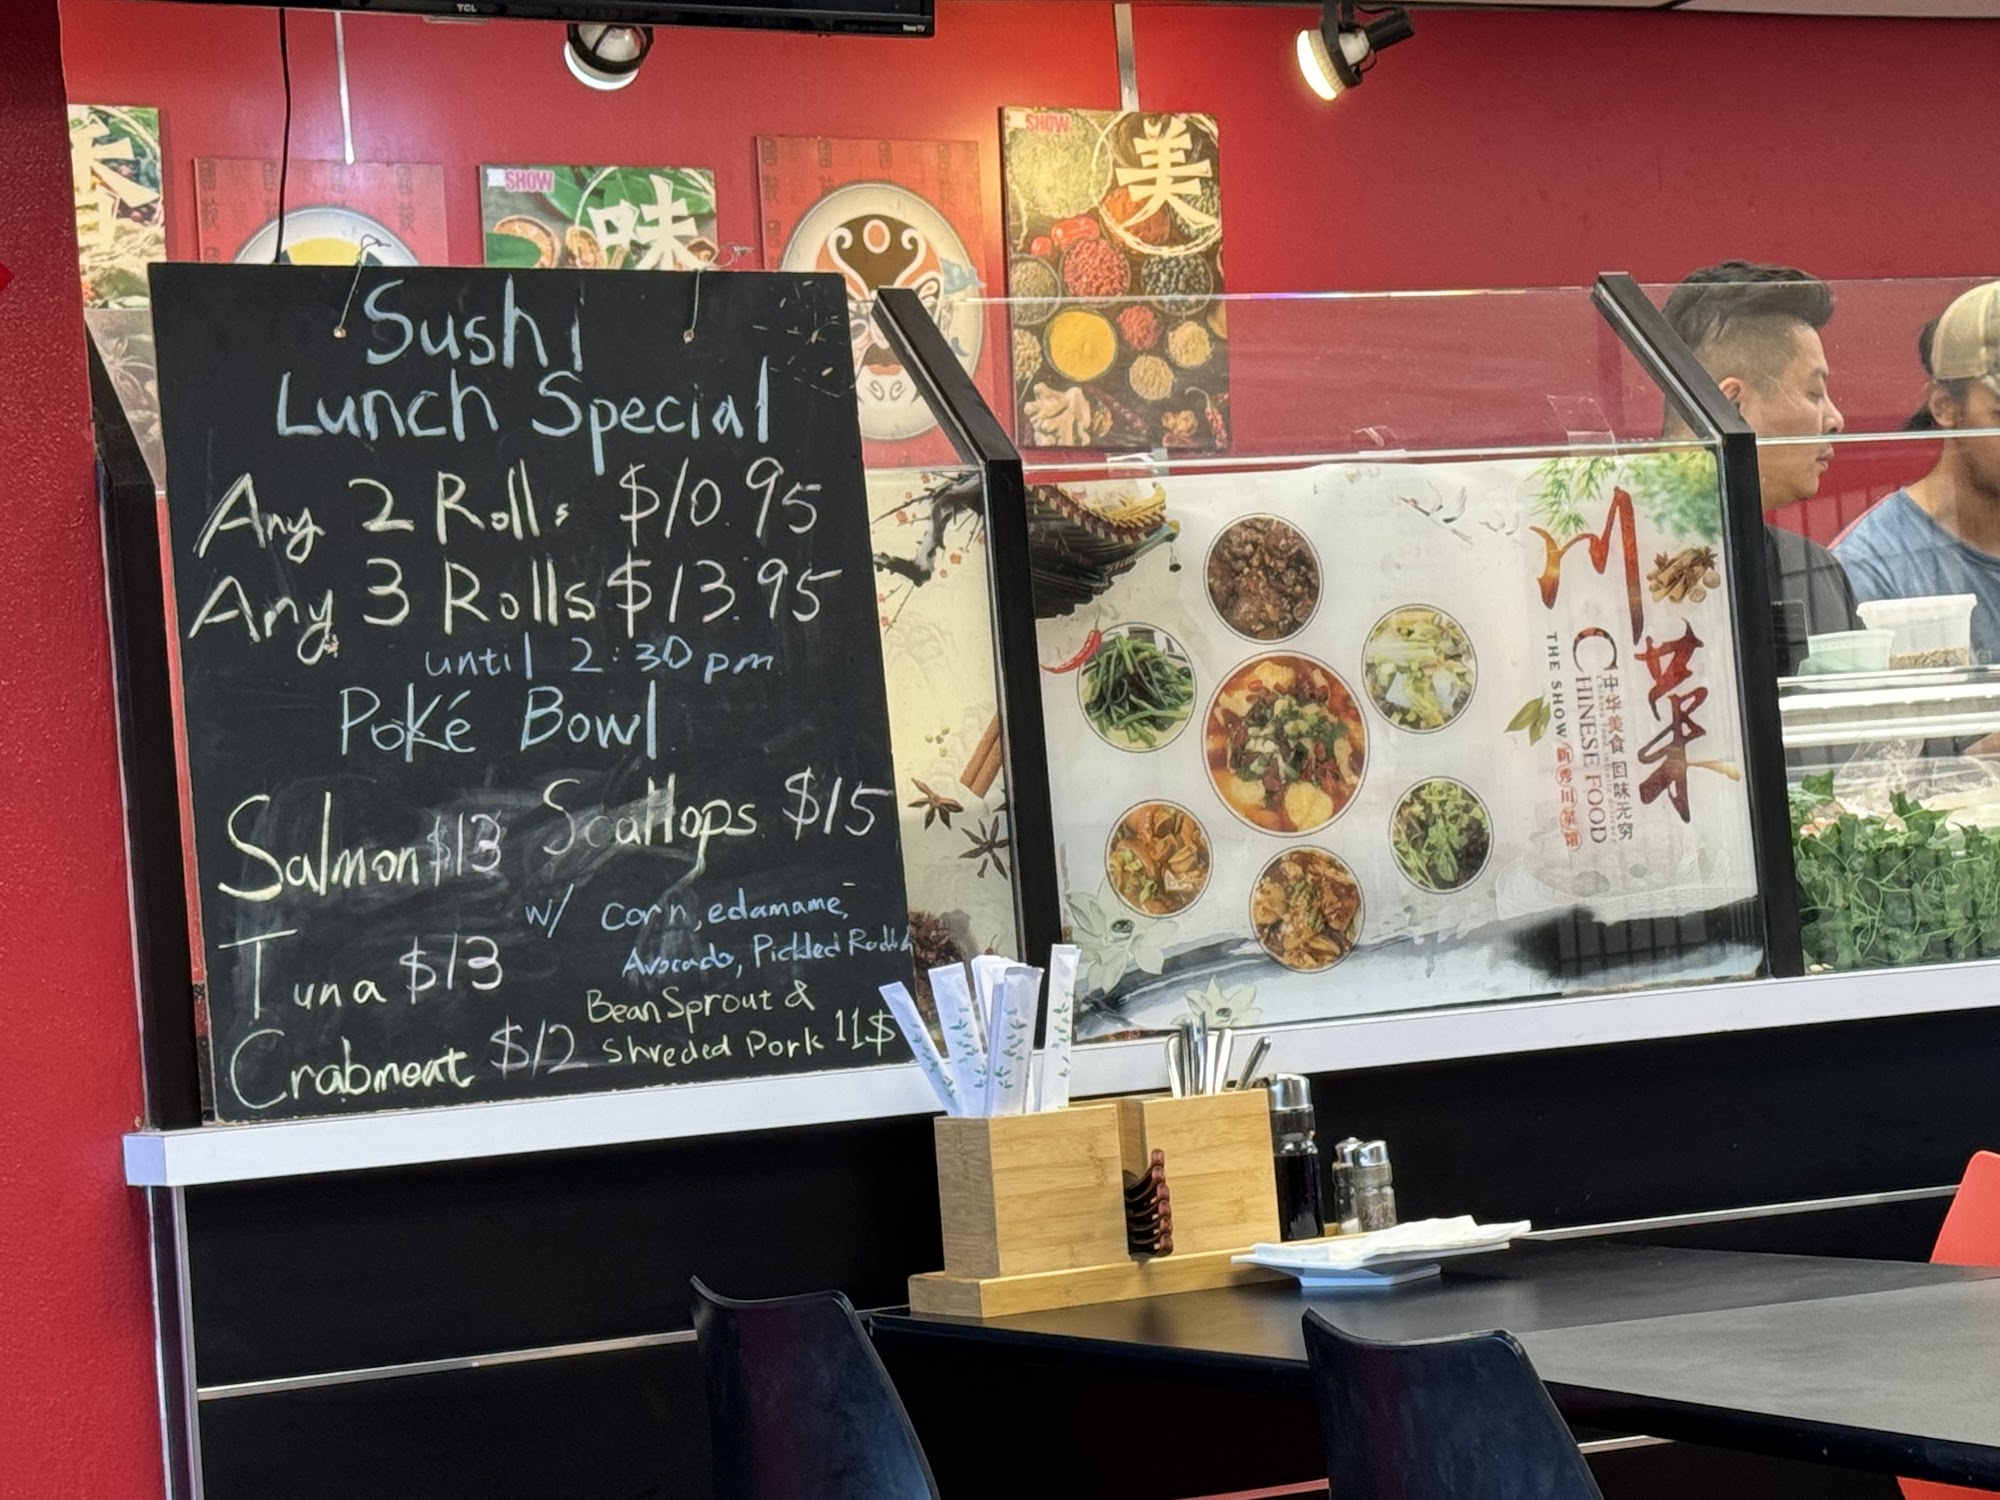 TCL
Roku TV
香
SHOW
味
SHOW
美
Sushi
Lunch Special
Any 2 Rolls $10.95
Any 3 Rolls $13.95
until 2:30 pm
Poké Bowl
Salmon $13
Scallops $15
w/ corn, edamame,
Avocado, Pickled Raddish
Tuna $13
Bean Sprout &
Shreded Pork 11$
Crabmeat $12
川菜
中华美食 回味无穷
CHINESE FOOD
THE SHOW 新秀川菜馆